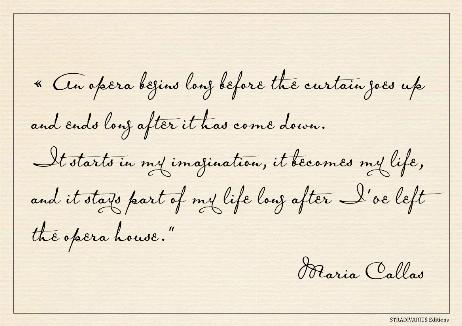 « An opera begins long before the curtain goes up
and ends long after it has come down.
It starts in my imagination, it becomes my life,
and it stays part of my life long after I've left
the opera house."
Maria Callas
STRADIVARIUS Editions